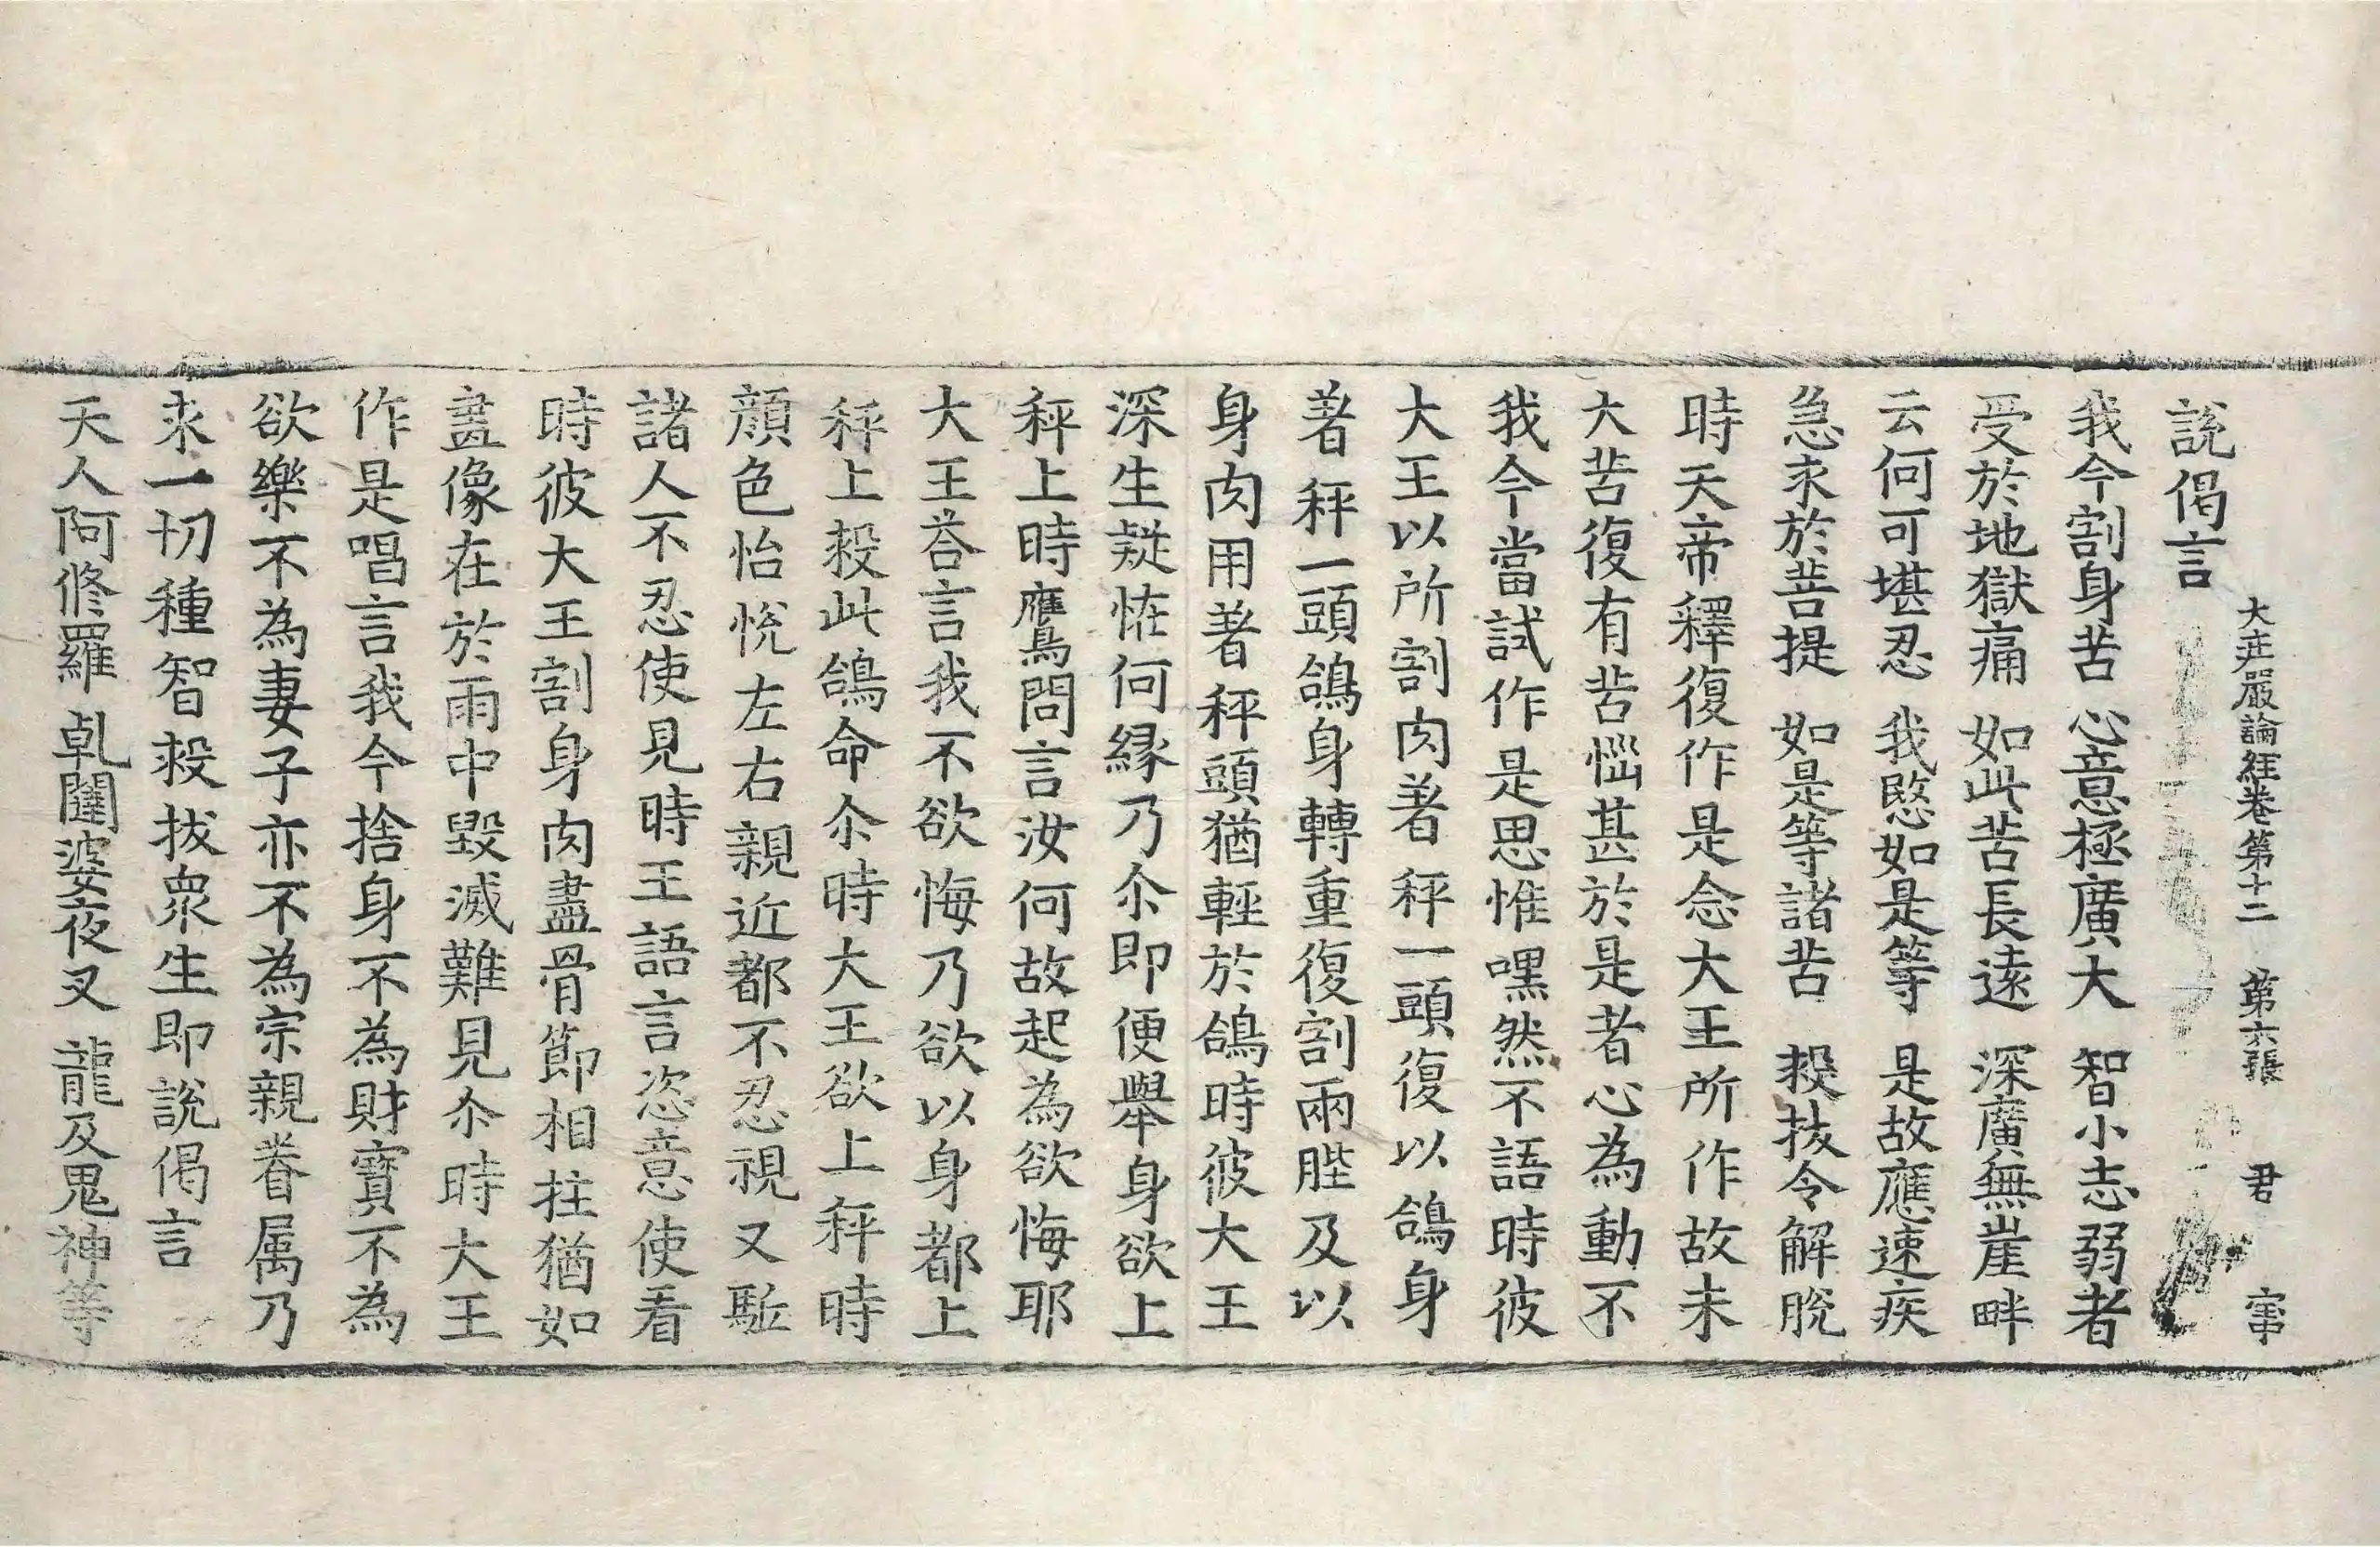 大庄嚴論経卷第十二 第六張 君 𡩋
說偈言
我今割身苦 心意極廣大 智小志弱者
受於地獄痛 如此苦長遠 深廣無崖畔
云何可堪忍 我愍如是等 是故應速疾
急求於菩提 如是等諸苦 救拔令解脫
時天帝釋復作是念大王所作故未
大苦復有苦惱甚於是者心為動不
我今當試作是思惟嘿然不語時彼
大王以所割肉著秤一頭復以鴿身
著秤一頭鴿身轉重復割兩䏶及以
身肉用著秤頭猶輕於鴿時彼大王
深生疑恠何縁乃尒即便舉身欲上
秤上時鷹問言汝何故起為欲悔耶
大王荅言我不欲悔乃欲以身都上
秤上救此鴿命尒時大王欲上秤時
顔色怡悅左右親近都不忍視又駈
諸人不忍使見時王語言恣意使看
時彼大王割身肉盡骨節相拄猶如
畫像在於雨中毀滅難見尒時大王
作是唱言我今捨身不為財寶不為
欲樂不為妻子亦不為宗親眷属乃
求一切種智救拔衆生即說偈言
天人阿修羅 乹闥婆夜叉 龍及鬼神等